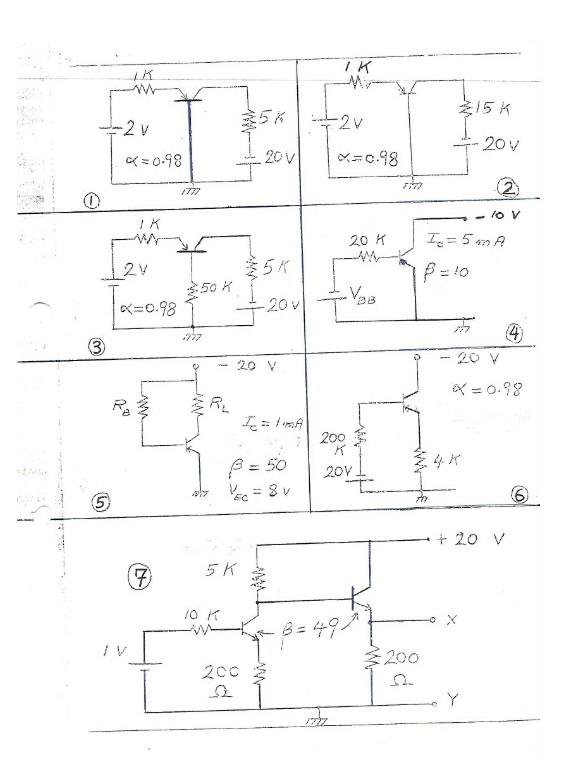 1K
2v
5K
α=0.98
20V
①
1K
15K
2v
20v
α=0.98
②
1K
2V
5K
50K
α=0.98
20V
③
- 10 V
20 K
Ic = 5 mA
β = 10
VBB
④
- 20 V
RB
RL
Ic = 1mA
β = 50
VEC = 8 v
⑤
- 20 V
α = 0.98
200
K
4 K
20V
⑥
⑦
+ 20 V
5 K
10 K
β = 49
X
1 V
200
Ω
200
Ω
Y